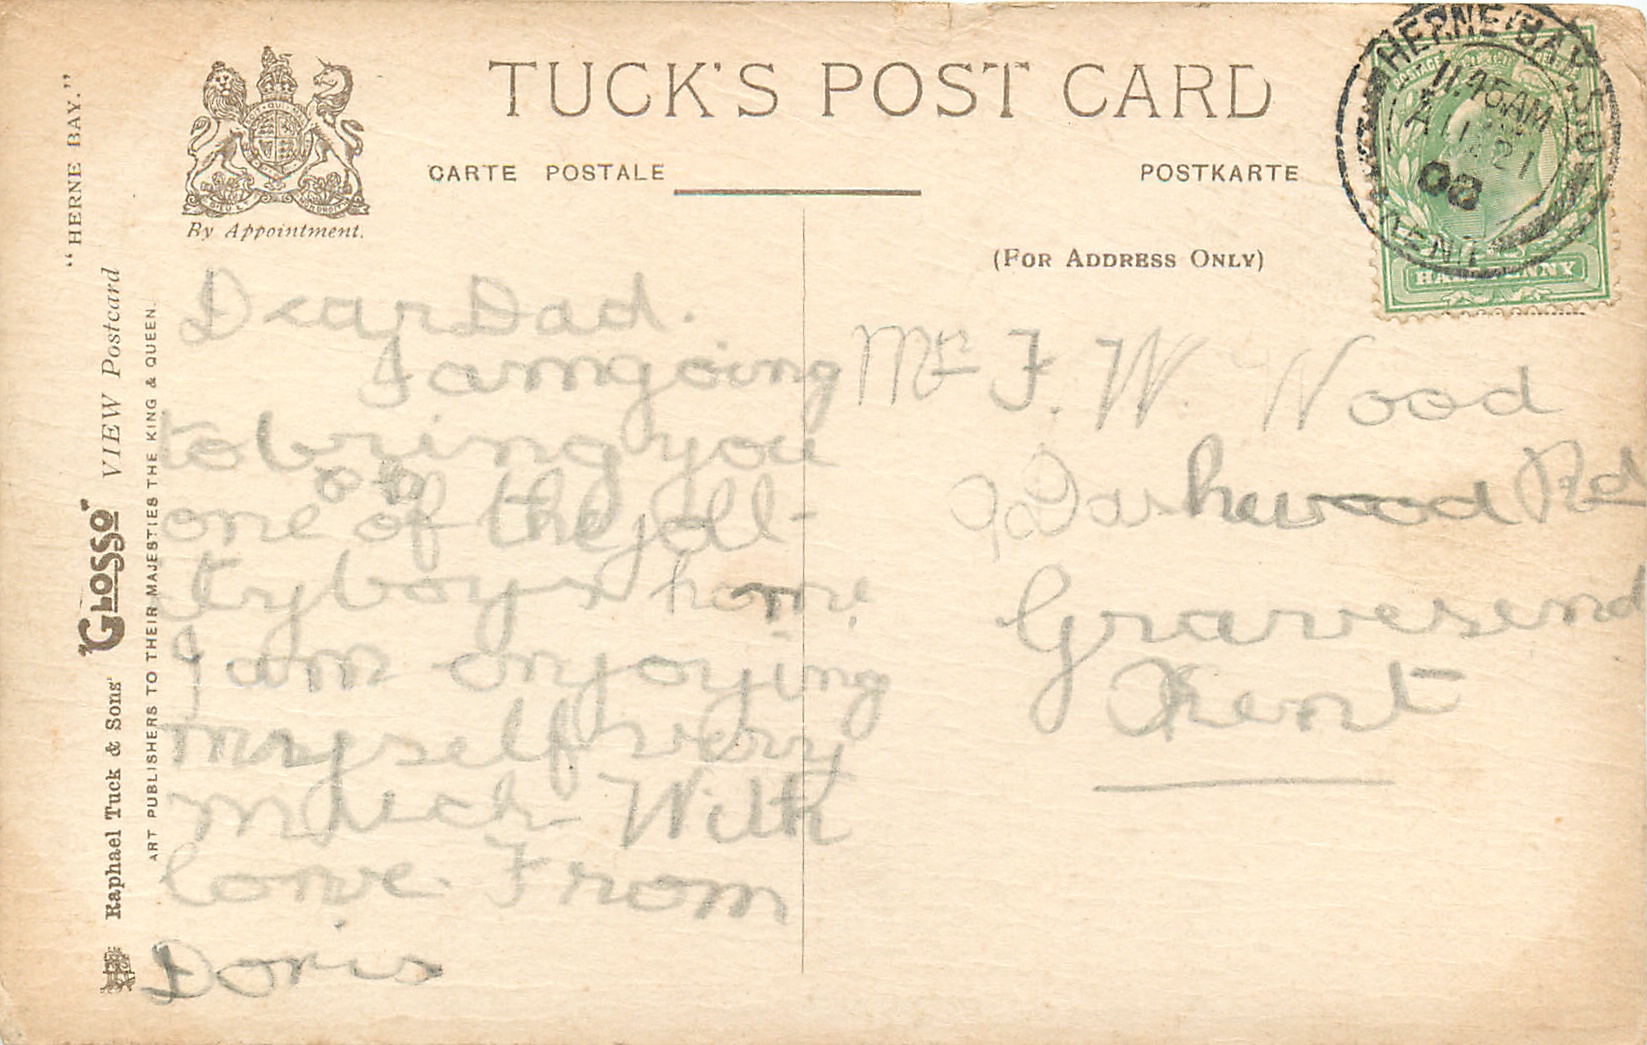 "HERNE BAY."
Raphael Tuck & Sons' "GLOSSO" VIEW Postcard
ART PUBLISHERS TO THEIR MAJESTIES THE KING & QUEEN.
By Appointment.
TUCK'S POST CARD
CARTE POSTALE
POSTKARTE
(FOR ADDRESS ONLY)
HERNE BAY
11.45 AM
AU 21
08
KENT
HALFPENNY
Dear Dad.
I am going
to bring you
one of the jol-
ty boys home
I am enjoying
myself very
much With
love From
Doris
Mr F. W. Wood
Dashwood Rd
Gravesend
Kent